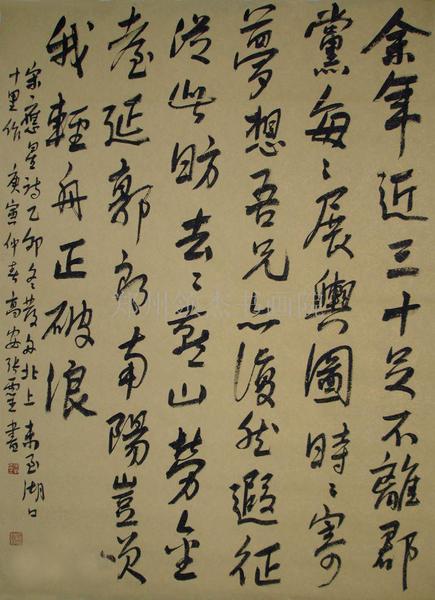 余年近三十足不離郡
黨每々展輿圖時々寄
夢想吾兄亦復然遐征
從此昉去々燕山勞金
臺延郭南陽豈
我輕舟正破浪
宋應星詩乙卯冬發舟北上未至湖口
十里作 庚寅仲春 高安張書